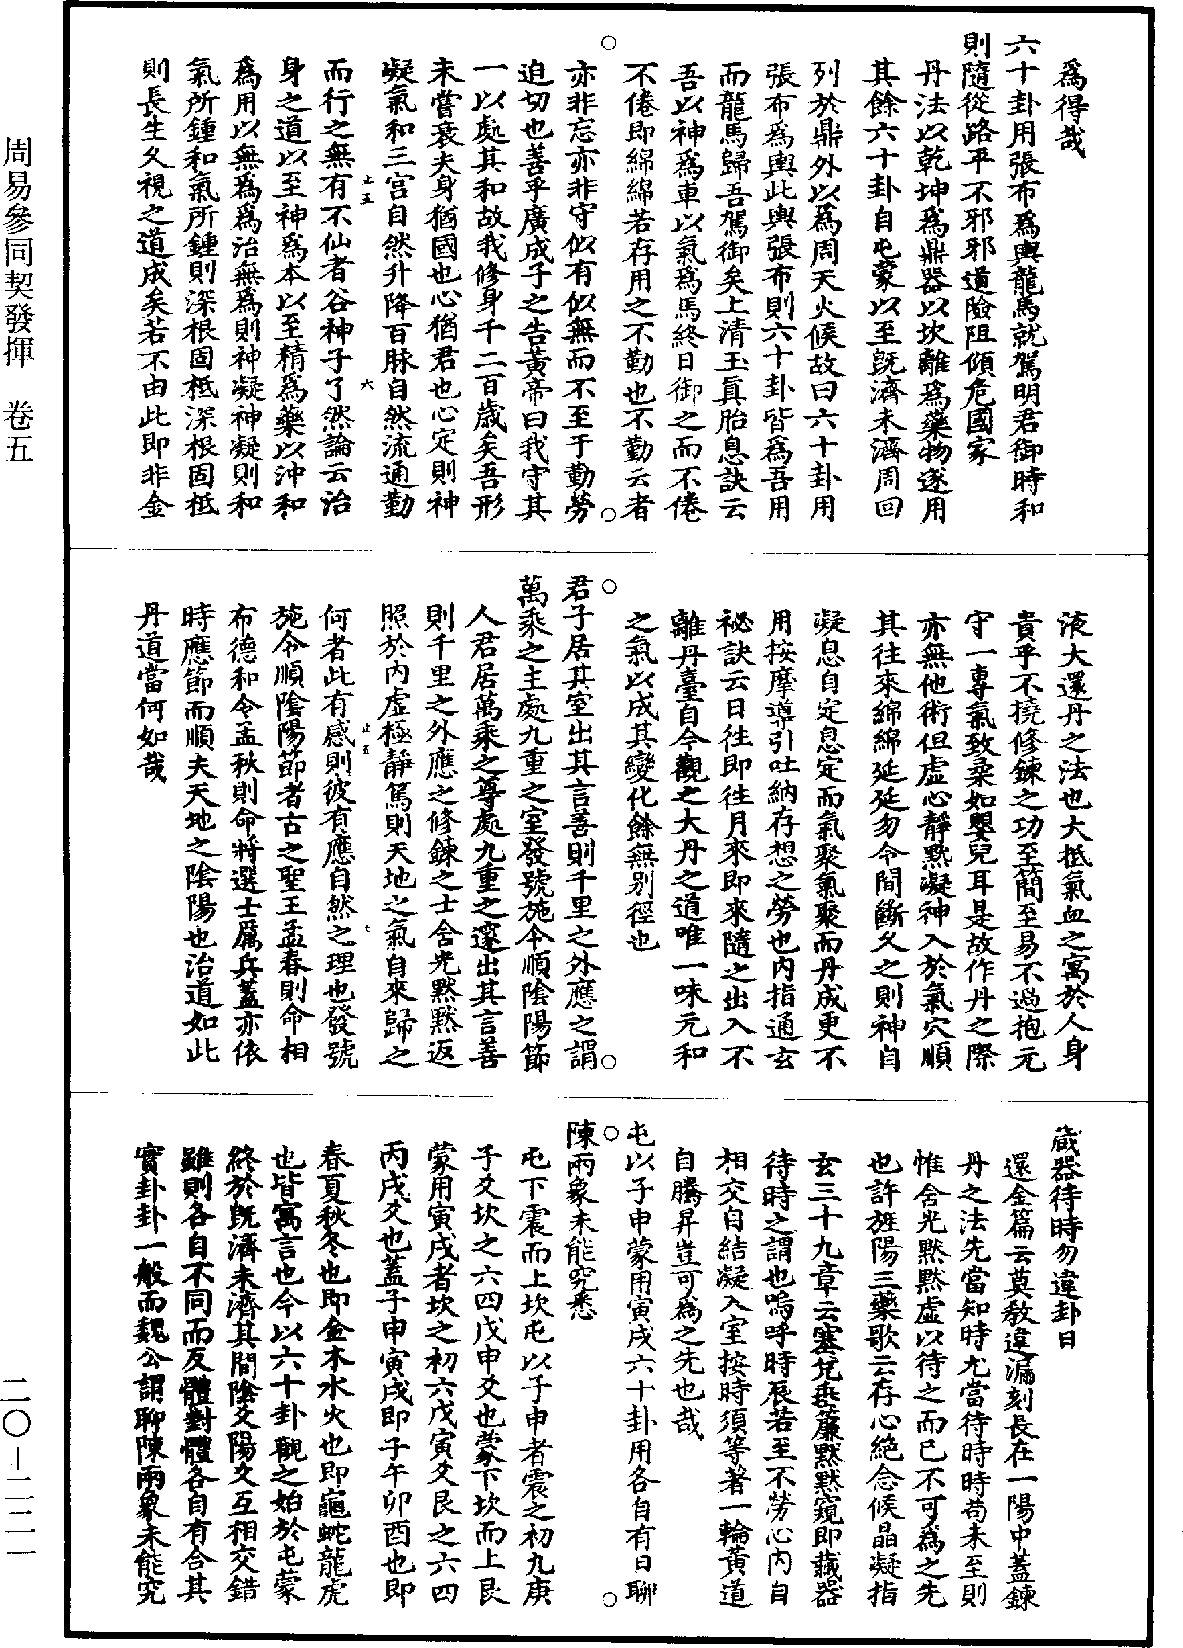 爲得哉
六十卦用張布爲輿龍馬就駕明君御時和
則隨從路平不邪邪道險阻傾危國家
丹法以乾坤爲鼎器以坎離爲藥物遂用
其餘六十卦自屯蒙以至旣濟未濟周回
列於鼎外以爲周天火候故曰六十卦用
張布爲輿此輿張布則六十卦皆爲吾用
而龍馬歸吾駕御矣上清玉眞胎息訣云
吾以神爲車以氣爲馬終日御之而不倦
不倦即綿綿若存用之不勤也不勤云者
亦非忘亦非守似有似無而不至于勤勞
迫切也善乎廣成子之告黃帝曰我守其
一以處其和故我修身千二百歲矣吾形
未嘗衰夫身猶國也心猶君也心定則神
凝氣和三宮自然升降百脉自然流通勤
而行之無有不仙者谷神子了然論云治
身之道以至神爲本以至精爲藥以沖和
爲用以無爲爲治無爲則神凝神凝則和
氣所鍾和氣所鍾則深根固柢深根固柢
則長生久視之道成矣若不由此即非金
液大還丹之法也大抵氣血之寓於人身
貴乎不撓修鍊之功至簡至易不過抱元
守一專氣致柔如嬰兒耳是故作丹之際
亦無他術但虛心靜默凝神入於氣穴順
其往來綿綿延延勿令間斷久之則神自
凝息自定息定而氣聚氣聚而丹成更不
用按摩導引吐納存想之勞也內指通玄
祕訣云日往即往月來即來隨之出入不
離丹臺自今觀之大丹之道唯一味元和
之氣以成其變化餘無別徑也
君子居其室出其言善則千里之外應之謂
萬乘之主處九重之室發號施令順陰陽節
人君居萬乘之尊處九重之邃出其言善
則千里之外應之修鍊之士含光默默返
照於內虛極靜篤則天地之氣自來歸之
何者此有感則彼有應自然之理也發號
施令順陰陽節者古之聖王孟春則命相
布德和令孟秋則命將選士厲兵蓋亦依
時應節而順夫天地之陰陽也治道如此
丹道當何如哉
藏器待時勿違卦日
還金篇云莫敎違漏刻長在一陽中蓋鍊
丹之法先當知時尤當待時時苟未至則
惟含光默默虛以待之而已不可爲之先
也許旌陽三藥歌云存心絕念候晶凝指
玄三十九章云塞兌垂簾默默窺即藏器
待時之謂也嗚呼時辰若至不勞心內自
相交自結凝入室按時須等著一輪黃道
自騰昇豈可爲之先也哉
屯以子申蒙用寅戌六十卦用各自有日聊
陳兩象未能究悉
屯下震而上坎屯以子申者震之初九庚
子爻坎之六四戊申爻也蒙下坎而上艮
蒙用寅戌者坎之初六戊寅爻艮之六四
丙戌爻也蓋子申寅戌即子午卯酉也即
春夏秋冬也即金木水火也即龜蛇龍虎
也皆寓言也今以六十卦觀之始於屯蒙
終於旣濟未濟其間陰爻陽爻互相交錯
雖則各自不同而反體對體各自有合其
實卦卦一般而魏公謂聊陳兩象未能究
止五
六
止五
七
周易參同契發揮 卷五
二〇—二二一